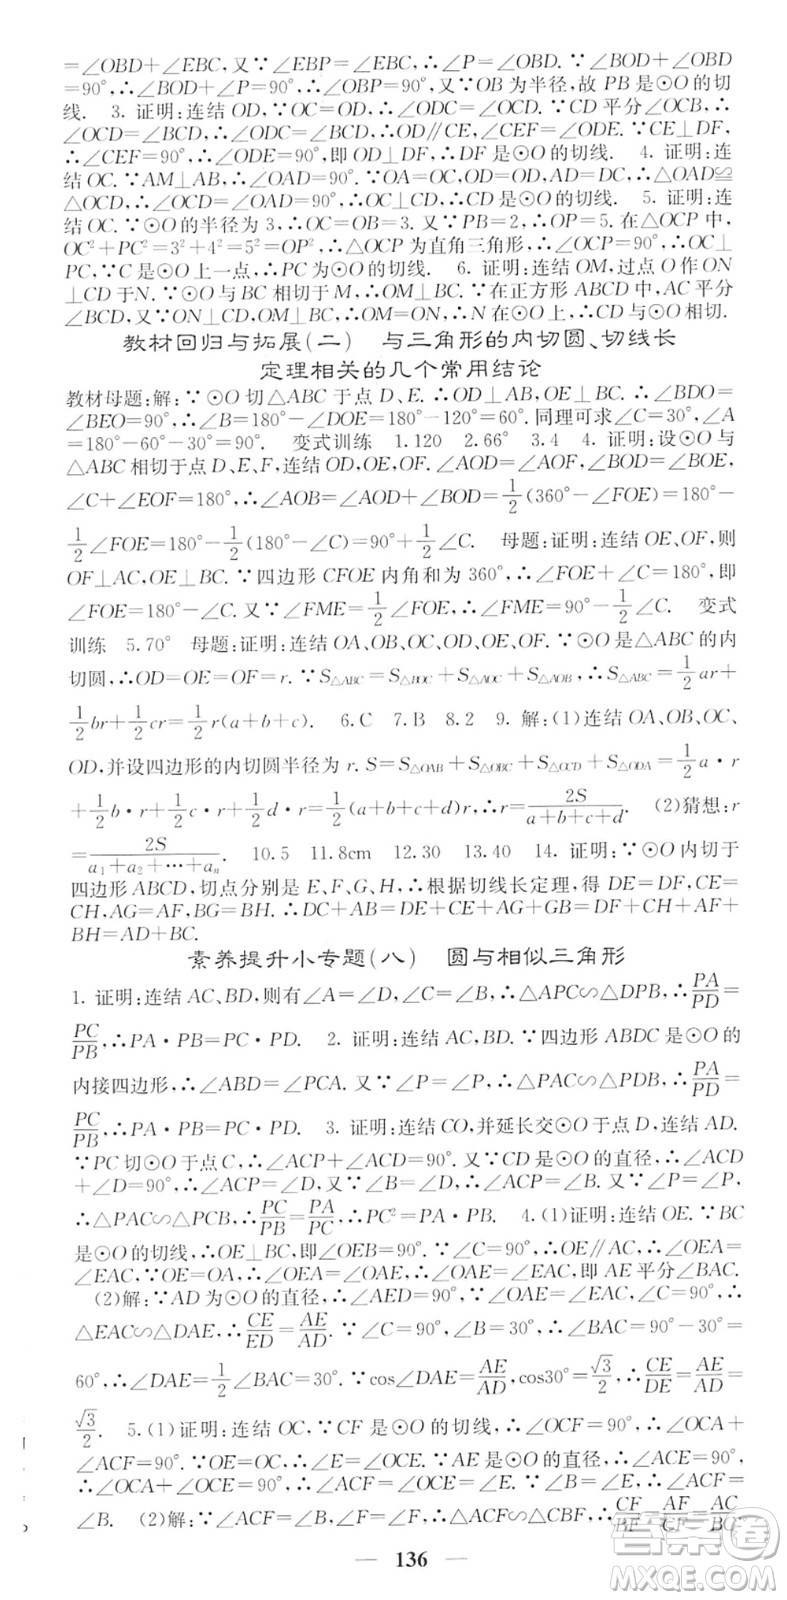 =∠OBD+∠EBC,又∵∠EBP=∠EBC,∴∠P=∠OBD.∵∠BOD+∠OBD
=90°,∴∠BOD+∠P=90°,∴∠OBP=90°.又∵OB为半径,故 PB是⊙O的切
线. 3. 证明:连结 OD,∵OC=OD,∴∠ODC=∠OCD.∵CD平分∠OCB,∴
∠OCD=∠BCD,∴∠ODC=∠BCD,∴OD∥CE,∠CEF=∠ODE.∵CE⊥DF,
∴∠CEF=90°,∴∠ODE=90°,即 OD⊥DF,∴DF是⊙O的切线. 4. 证明:连
结 OC.∵AM⊥AB,∴∠OAD=90°.∵OA=OC,OD=OD,AD=DC,∴△OAD≌
△OCD,∴∠OCD=∠OAD=90°,∴CD是⊙O的切线. 5. 证明:连结
OC.∵⊙O的半径为3,∴OC=OB=3.又∵PB=2,∴OP=5.在△OCP中,
OC²+PC²=3²+4²=5²=OP²,∴△OCP为直角三角形,∴∠OCP=90°,∴OC⊥
PC,∵C是⊙O上一点,∴PC是⊙O的切线. 6. 证明:连结 OM,过点 O作ON
⊥CD于N.∵⊙O与BC相切于 M,∴OM⊥BC.∵在正方形 ABCD中,AC平分
∠BCD,OM⊥BC,ON⊥CD,∴OM=ON,∴CD与⊙O相切.
教材回归与拓展(二) 与三角形的内切圆、切线长
定理相关的几个常用结论
教材母题:解:∵⊙O切△ABC于点 D、E.∴OD⊥AB,OE⊥BC.∴∠BDO=
∠BEO=90°,∴∠B=180°-∠DOE=180°-120°=60°.同理可求∠C=30°,∠A
=180°-60°-30°=90°. 变式训练 1.120 2.66° 3.4 4. 证明:设⊙O与
△ABC相切于点 D、E、F,连结 OD,OE,OF.∠AOD=∠AOF,∠BOD=∠BOE,
∠C+∠EOF=180°,∴∠AOB=∠AOD+∠BOD=1/2(360°-∠FOE)=180°-
1/2∠FOE=180°-1/2(180°-∠C)=90°+1/2∠C. 母题:证明:连结 OE、OF,则
OF⊥AC,OE⊥BC.∵四边形 CFOE 内角和为 360°,∴∠FOE+∠C=180°,即
∠FOE=180°-∠C.又∵∠FME=1/2∠FOE,∴∠FME=90°-1/2∠C. 变式
训练 5.70° 母题:证明:连结 OA、OB、OC、OD、OE、OF.∵⊙O是△ABC的内
切圆,∴OD=OE=OF=r.∵S△ABC=S△BOC+S△AOC+S△AOB,∴S△ABC=1/2ar+
1/2br+1/2cr=1/2r(a+b+c). 6.C 7.B 8.2 9. 解:(1)连结 OA、OB、OC、
OD,并设四边形的内切圆半径为 r.S=S△OAB+S△OBC+S△OCD+S△ODA=1/2a·r
+1/2b·r+1/2c·r+1/2d·r=1/2(a+b+c+d)r,∴r=2S/(a+b+c+d). (2)猜想:r
=2S/(a₁+a₂+⋯+aₙ). 10.5 11.8cm 12.30 13.40 14. 证明:∵⊙O内切于
四边形 ABCD,切点分别是 E、F、G、H,∴根据切线长定理,得 DE=DF,CE=
CH,AG=AF,BG=BH.∴DC+AB=DE+CE+AG+BG=DF+CH+AF+
BH=AD+BC.
素养提升小专题(八) 圆与相似三角形
1. 证明:连结 AC、BD,则有∠A=∠D,∠C=∠B,∴△APC∽△DPB,∴PA/PD=
PC/PB,∴PA·PB=PC·PD. 2. 证明:连结 AC,BD.∵四边形 ABDC是⊙O的
内接四边形,∴∠ABD=∠PCA.又∵∠P=∠P,∴△PAC∽△PDB,∴PA/PD=
PC/PB,∴PA·PB=PC·PD. 3. 证明:连结 CO,并延长交⊙O于点 D,连结 AD.
∵PC切⊙O于点 C,∴∠ACP+∠ACD=90°.∵CD是⊙O的直径,∴∠ACD
+∠D=90°,∴∠ACP=∠D.又∵∠D=∠B,∴∠ACP=∠B.又∵∠P=∠P,
∴△PAC∽△PCB,∴PC/PB=PA/PC,∴PC²=PA·PB. 4.(1)证明:连结 OE.∵BC
是⊙O的切线,∴OE⊥BC,即∠OEB=90°.∵∠C=90°,∴OE∥AC,∴∠OEA=
∠EAC,∵OE=OA,∴∠OEA=∠OAE,∴∠OAE=∠EAC,即 AE平分∠BAC.
(2)解:∵AD为⊙O的直径,∴∠AED=90°,∵∠OAE=∠EAC,∠C=90°,∴
△EAC∽△DAE,∴CE/ED=AE/AD.∵∠C=90°,∠B=30°,∴∠BAC=90°-30°=
60°,∴∠DAE=1/2∠BAC=30°.∵cos∠DAE=AE/AD,cos30°=√3/2,∴CE/DE=AE/AD=
√3/2. 5.(1)证明:连结 OC,∵CF是⊙O的切线,∴∠OCF=90°,∴∠OCA+
∠ACF=90°.∵OE=OC,∴∠E=∠OCE.∵AE是⊙O的直径,∴∠ACE=90°,
∴∠OCA+∠OCE=90°,∴∠ACF=∠OCE=∠E.∵∠B=∠E,∴∠ACF=
∠B. (2)解:∵∠ACF=∠B,∠F=∠F,∴△ACF∽△CBF,∴CF/BF=AF/CF=AC/BC
136
答案圈
MXEE.COM